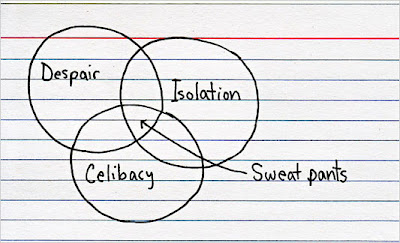 Despair
Isolation
Celibacy
Sweat pants